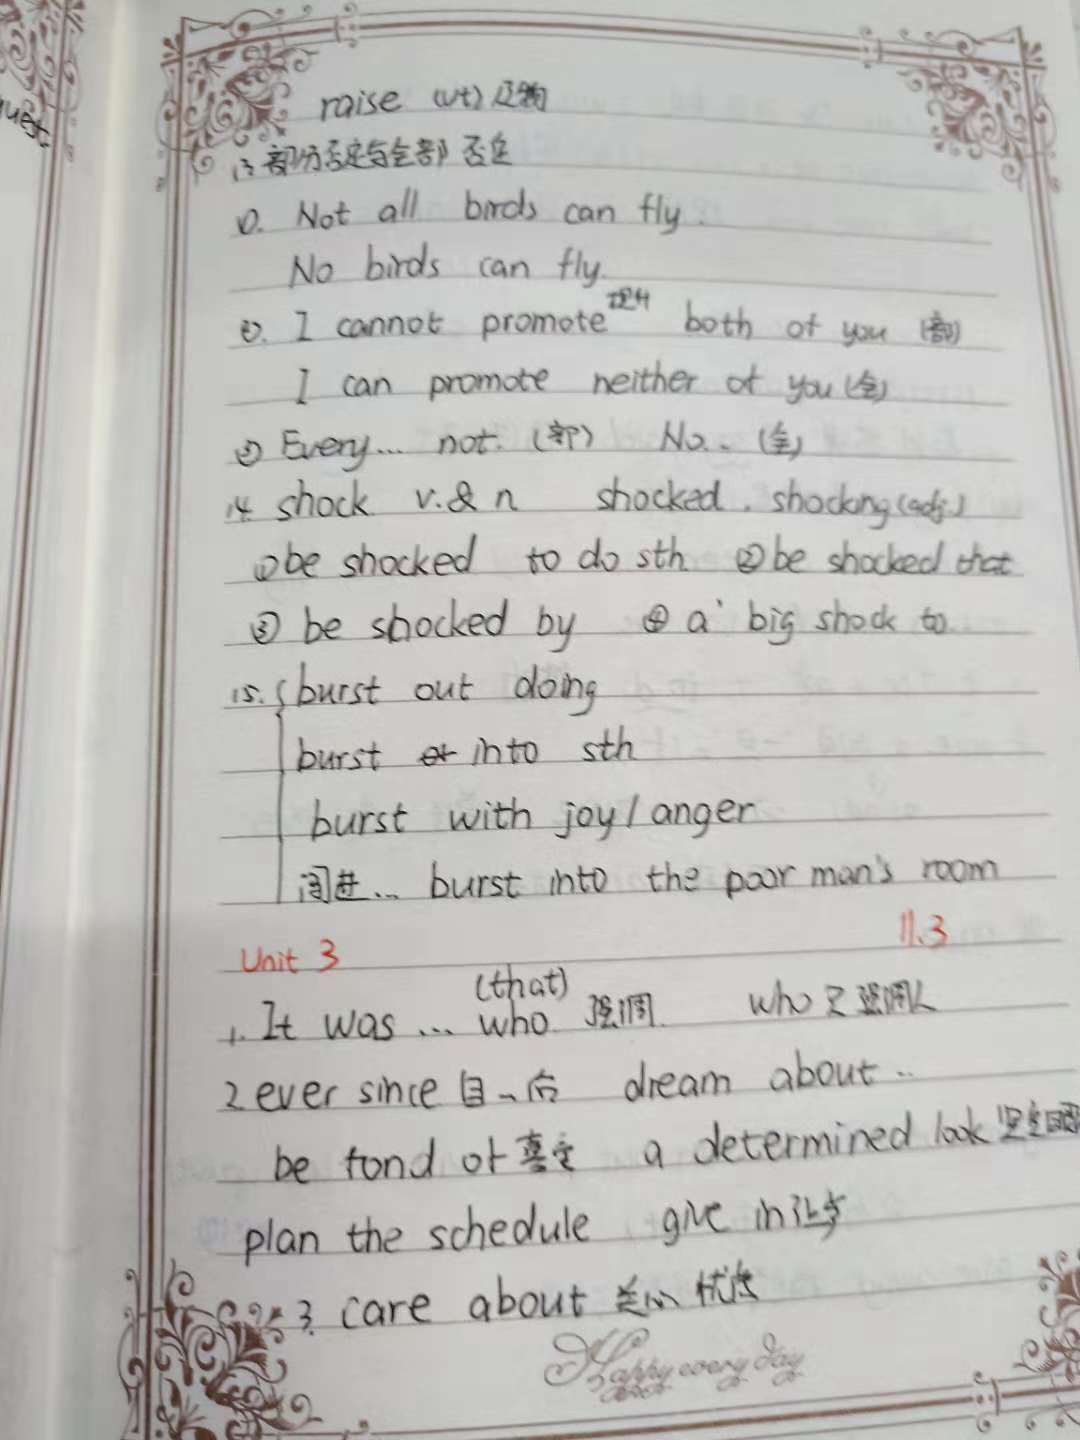 raise (vt) 及物
13 部分否定与全部否定
①. Not all birds can fly.
No birds can fly.
②. I cannot promote both of you (部)
I can promote neither of you (全)
③ Every... not. (部) No.. (全)
14. shock v.&n shocked. shocking (adj.)
①be shocked to do sth ②be shocked that
③ be shocked by ④ a big shock to
15. burst out doing
burst into sth
burst with joy/anger
闯进... burst into the poor man's room
Unit 3 11.3
(that)
1. It was ... who 强调 who 只强调人
2 ever since 自 dream about ..
be fond of 喜爱 a determined look 坚定
plan the schedule give in 让步
3. care about 关心 忧虑
Happy every day